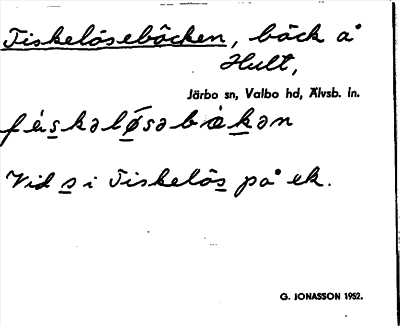 Fiskelösebäcken, bäck å
Hult,
Järbo sn, Valbo hd, Älvsb. ln.
féskəlø̄səbèkən
Vid s i Fiskelös på ek.
G. JONASSON 1952.